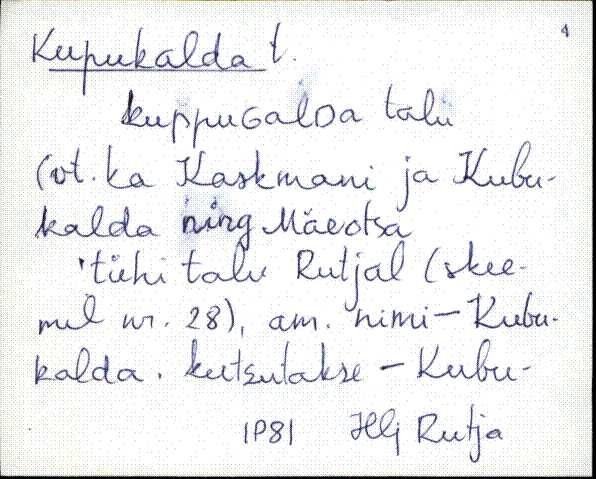 4
Kupukalda t.
kuppuGalDa talu
(vt. ka Kaskmani ja Kubu-
kalda ning Mäeotsa
'tühi talu Rutjal (skee-
mil nr. 28), am. nimi - Kubu-
kalda. kutsutakse - Kubu-
1981 HlJ Rutja